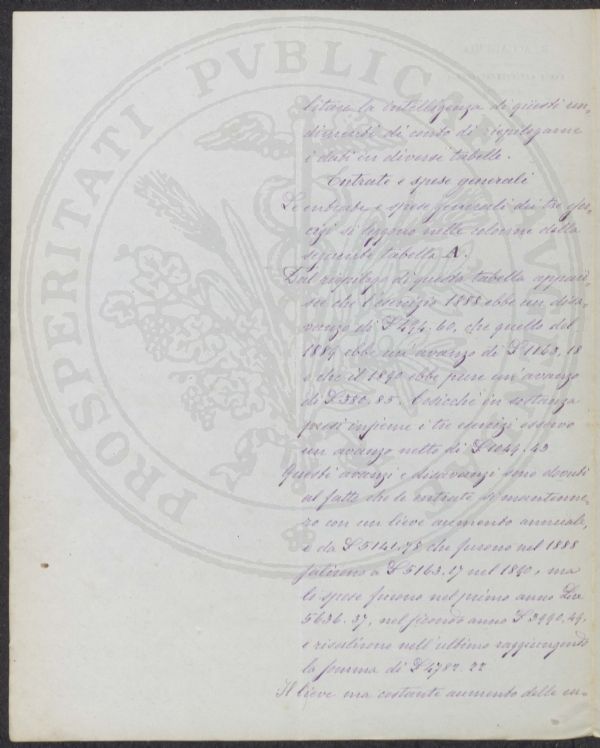 PROSPERITATI PVBLICAE
litare la intelligenza di questi ren-
diconti di conto di riepilogarne
i dati in diverse tabelle.
Entrate e spese generali
Le entrate e spese generali dei tre eser-
cizi si leggono nelle colonne della
seguente tabella A.
Dal riepilogo di questa tabella appari-
sce che l'esercizio 1888 ebbe un disa-
vanzo di £ 494.60, che quello del
1889 ebbe un avanzo di £ 1163.18
e che il 1890 ebbe pure un'avanzo
di £ 380.85. Cosicchè in sostanza
presi insieme i tre esercizi
un avanzo netto di £ 1049.43
Questi avanzi e disavanzi sono dovuti
al fatto che le entrate si mantenne-
ro con un lieve aumento annuale,
e da £ 5141.78 che furono nel 1888
salirono a £ 5163.17 nel 1890, ma
le spese furono nel primo anno Lire
5636.37, nel secondo anno £ 3990.49,
e risalirono nell'ultimo raggiungendo
la somma di £ 4782.22
Il lieve ma costante aumento delle en-